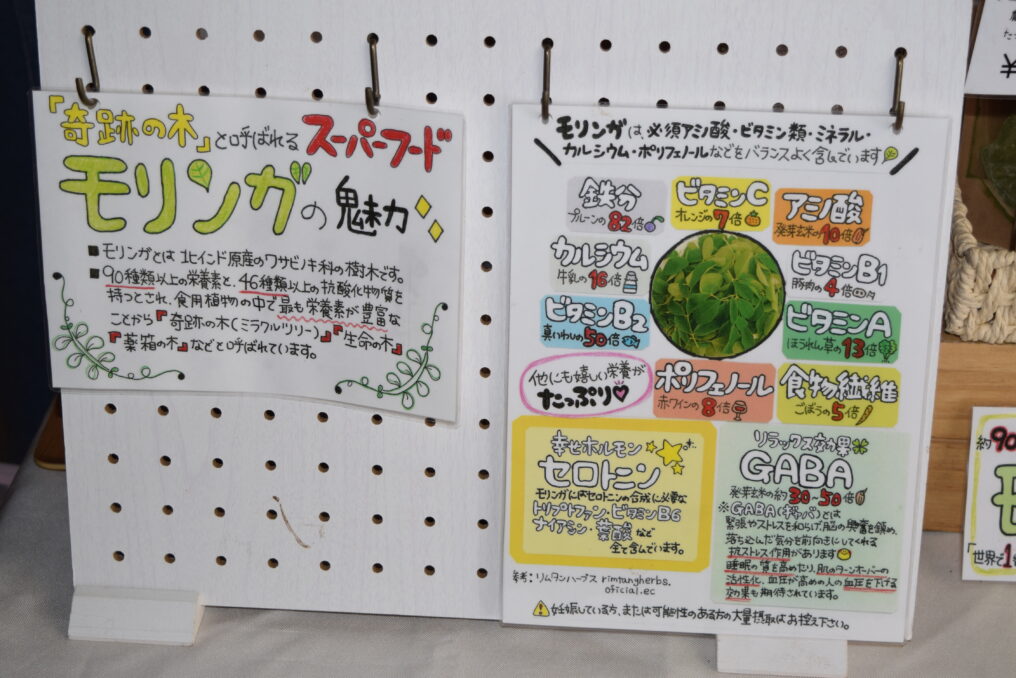 「奇跡の木」と呼ばれるスーパーフード
モリンガの魅力
■モリンガとは 北インド原産のワサビノキ科の樹木です。
■90種類以上の栄養素と、46種類以上の抗酸化物質を
持つとされ、食用植物の中で最も栄養素が豊富な
ことから『奇跡の木(ミラクルツリー)』『生命の木』
『薬箱の木』などと呼ばれています。
モリンガは、必須アミノ酸・ビタミン類・ミネラル・
カルシウム・ポリフェノールなどをバランスよく含んでいます
鉄分
プルーンの82倍
ビタミンC
オレンジの7倍
アミノ酸
発芽玄米の10倍
カルシウム
牛乳の16倍
ビタミンB1
豚肉の4倍
ビタミンB2
真いわしの50倍
ビタミンA
ほうれん草の13倍
他にも嬉しい栄養が
たっぷり♡
ポリフェノール
赤ワインの8倍
食物繊維
ごぼうの5倍
幸せホルモン
セロトニン
モリンガにはセロトニンの合成に必要な
トリプトファン、ビタミンB6
ナイアシン、葉酸など
全て含んでいます。
リラックス効果
GABA
発芽玄米の約30~50倍
※GABA(ギャバ)とは
緊張やストレスを和らげ、脳の興奮を鎮め、
落ち込んだ気分を前向きにしてくれる
抗ストレス作用があります
睡眠の質を高めたり、肌のターンオーバーの
活性化、血圧が高めの人の血圧を下げる
効果も期待されています。
参考:リムタンハーブス rimtangherbs.
oficial.ec
⚠妊娠している方、または可能性のある方の大量摂取はお控え下さい。
約90
「世界で1